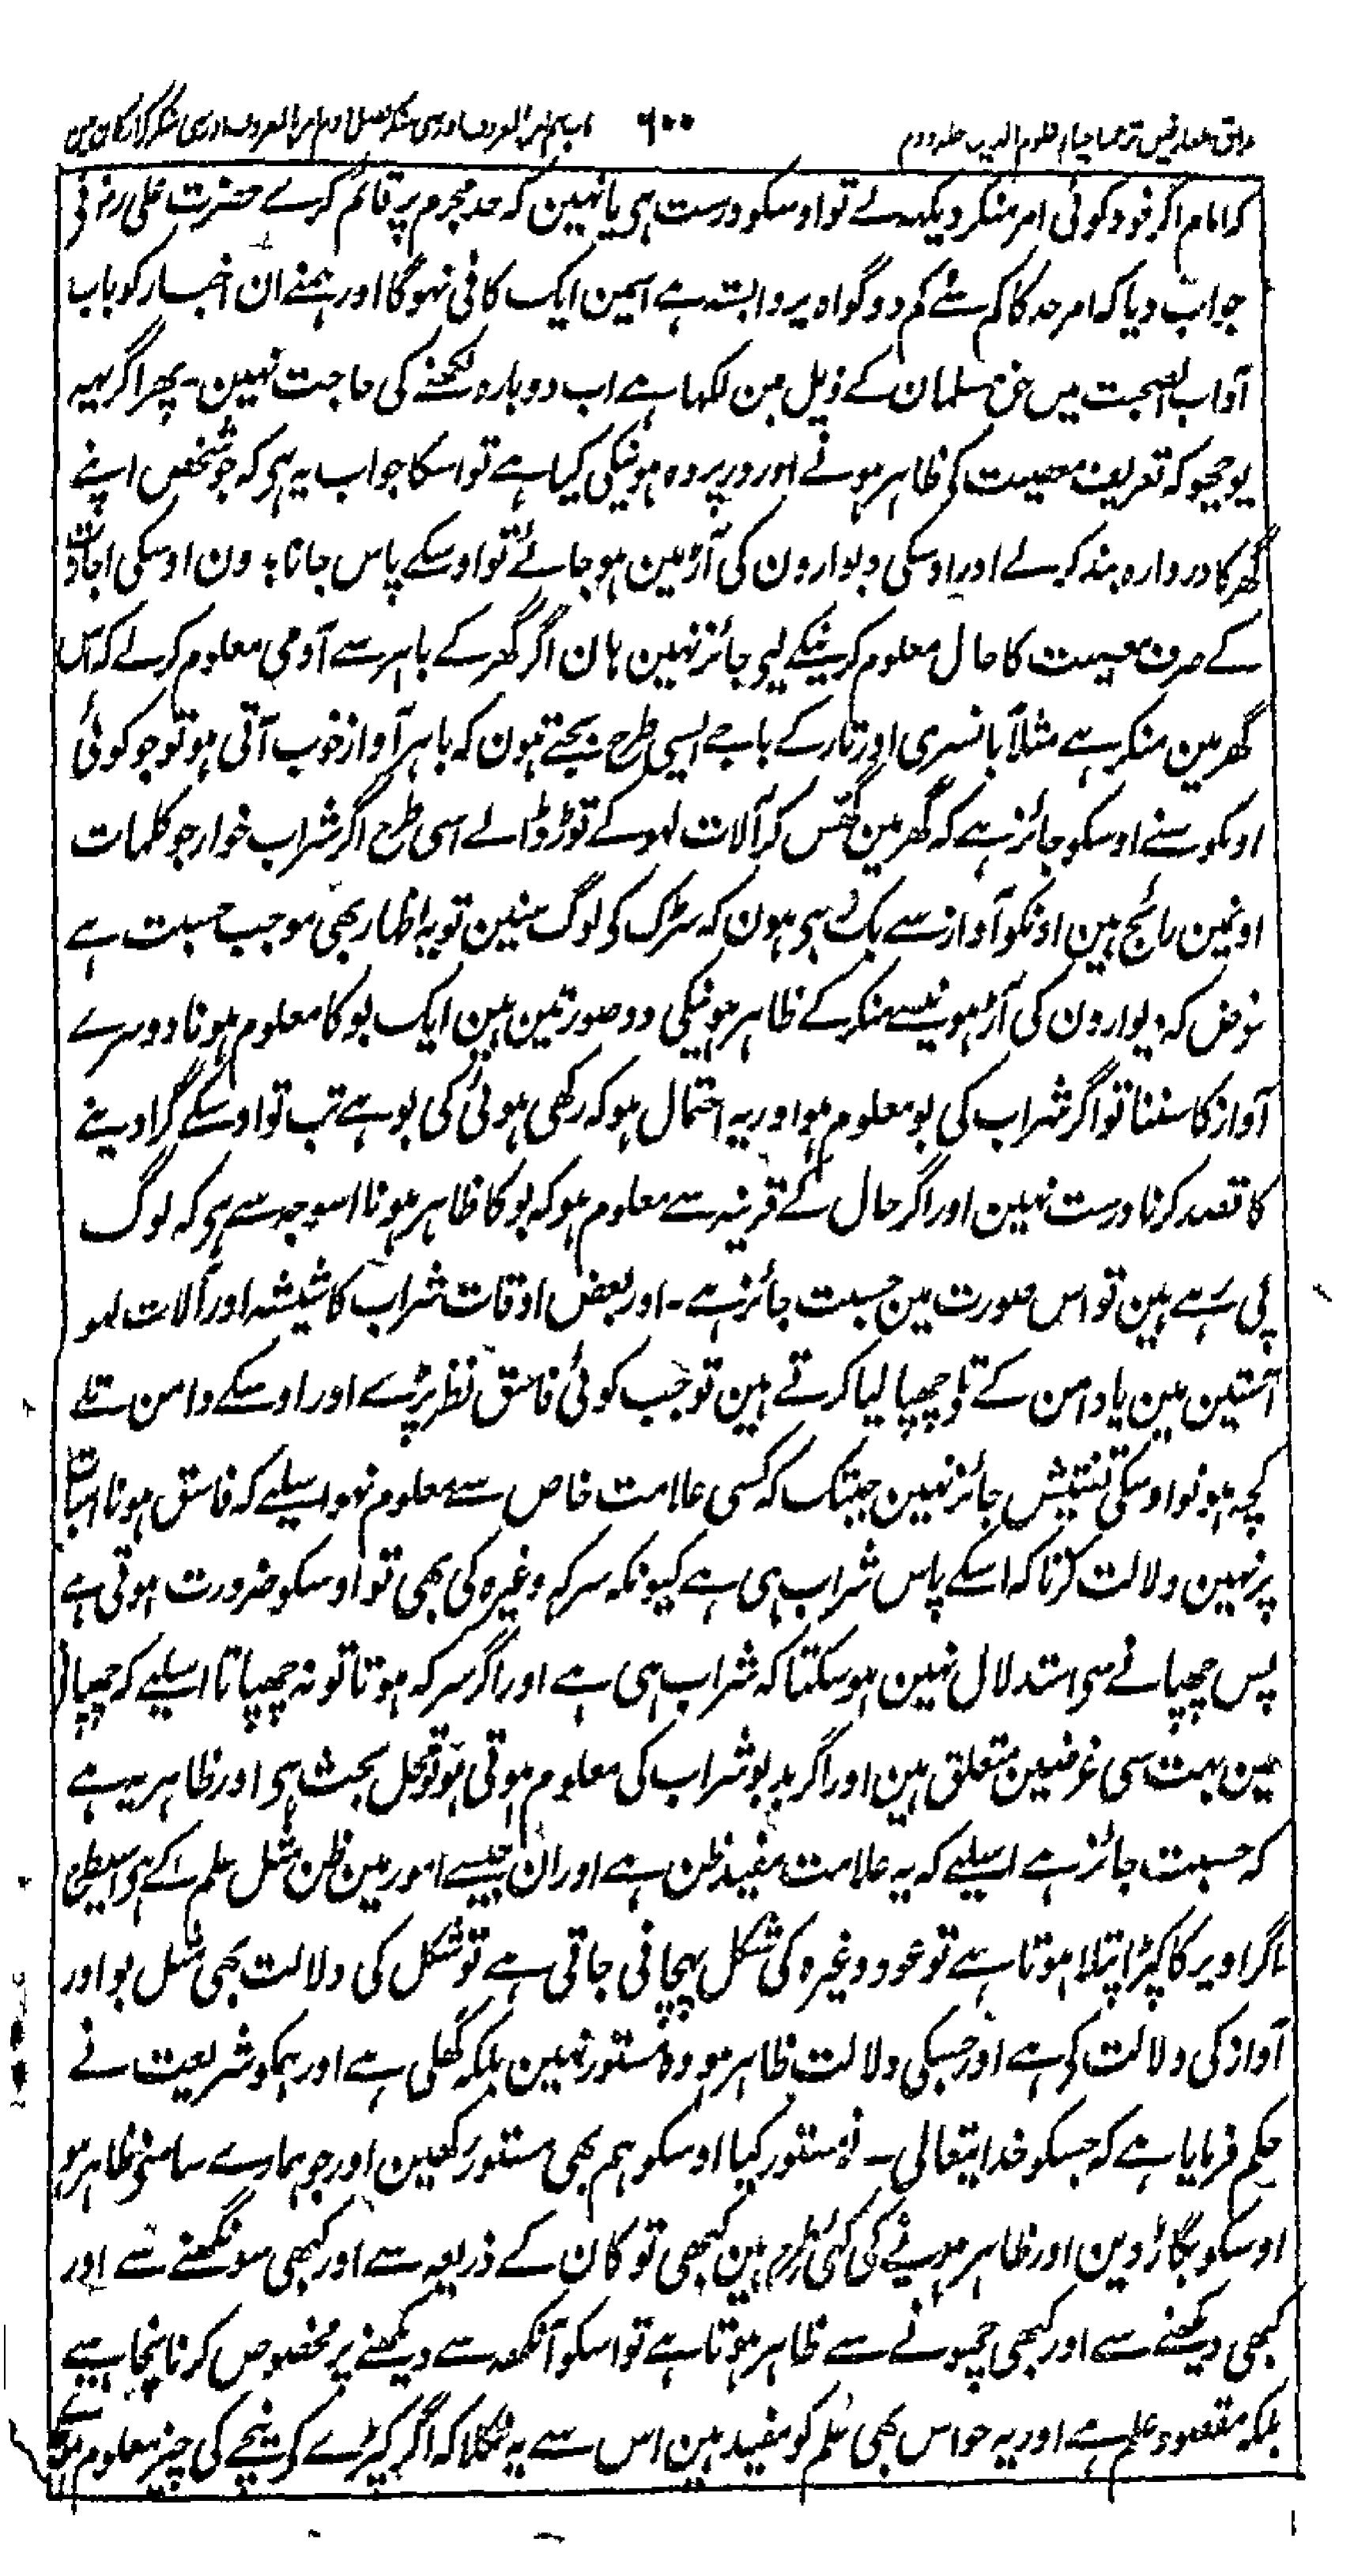 مذاق العارفین ترجمہ احیاء علوم الدین جلد دوم ۶۰۰ باب نہم امر بالمعروف اور نہی منکر فصل دوم امر بالمعروف اور نہی منکر کے ارکان میں
کہ امام اگر خود کوئی امر منکر دیکھ لے تو اوسکو درست ہی یا نہین کہ حد مجرم پر قائم کرے حضرت علی رضؓ نی
جواب دیا کہ امر حد کا کم سے کم دو گواہ پر وابستہ ہے اسمین ایک کافی نہوگا اور ہمنے ان اخبار کو باب
آداب الصحبت میں حق مسلمان کے ذیل مین لکہا ہے اب دوبارہ لکھنے کی حاجت نہین ۔ پھر اگر یہہ
پوچھو کہ تعریف معصیت کی ظاہر ہونے اور در پردہ ہونیکی کیا ہے تو اسکا جواب یہ ہی کہ جو شخص اپنے
گھر کا دروازہ بند کر لے اور اوسکی دیوارون کی آڑ مین ہو جائے تو اوسکے پاس جانا بدون اوسکی اجازت
کے صرف معصیت کا حال معلوم کرنیکے لیے جائز نہین ہان اگر گھر کے باہر سے آدمی معلوم کر لے کہ اس
گھر مین منکر ہے مثلاً بانسری اور تار کے باجے ایسی طرح بجتے ہون کہ باہر آواز خوب آتی ہو تو جو کوئی
اونکو سنے اوسکو جائز ہے کہ گھر مین گھس کر آلات لہو کے توڑ ڈالے اسی طرح اگر شراب خوار جو کلمات
اونمین رائج ہین اونکو آواز سے بک رہی ہون کہ سڑک کی لوگ سنین تو یہ اظہار بھی موجب حسبت ہے
غرض کہ دیوارون کی آڑ ہونیسے منکر کے ظاہر ہونیکی دو صورتین ہین ایک بو کا معلوم ہونا دوسرے
آواز کا سننا تو اگر شراب کی بو معلوم ہو اور یہ احتمال ہو کہ رکھی ہوئی کی بو ہے تب تو اوسکے گرا دینے
کا قصد کرنا درست نہین اور اگر حال کے قرینہ سے معلوم ہو کہ بو کا ظاہر ہونا اسوجہ سے ہی کہ لوگ
پی رہے ہین تو اس صورت مین حسبت جائز ہے ۔ اور بعض اوقات شراب کا شیشہ اور آلات لہو
آستین مین یا دامن کے تلے چھپا لیا کرتے ہین تو جب کوئی فاسق نظر پڑے اور اوسکے دامن تلے
کچھ ہو تو اوسکی تفتیش جائز نہین جبتک کہ کسی علامت خاص سے معلوم نہو اسیلیے کہ فاسق ہونا اسبات
پر نہین دلالت کرتا کہ اسکے پاس شراب ہی ہے کیونکہ سرکہ وغیرہ کی بھی تو اوسکو ضرورت ہوتی ہے
پس چھپانے سی استدلال نہین ہو سکتا کہ شراب ہی ہے اور اگر سرکہ ہوتا تو نہ چھپاتا اسیلیے کہ چھپانی
مین بہت سی غرضین متعلق ہین اور اگر بدبو شراب کی معلوم ہوتی ہو تو محل بحث ہی اور ظاہر یہ ہے
کہ حسبت جائز ہے اسیلیے کہ یہ علامت مفید ظن ہے اور ان جیسے امور مین ظن مثل علم کے ہی اسیطرح
اگر اوپر کا کپڑا پتلا ہوتا ہے تو عود وغیرہ کی شکل پہچانی جاتی ہے تو شکل کی دلالت بھی مثل بو اور
آواز کی دلالت کی ہے اور جسکی دلالت ظاہر ہو وہ مستور نہین بلکہ کھلی ہے اور ہمکو شریعت نے
حکم فرمایا ہے کہ جسکو خدایتعالی نے مستور کیا اوسکو ہم بھی مستور رکھین اور جو ہمارے سامنے ظاہر ہو
اوسکو بگاڑ دین اور ظاہر ہونیکی کئی طرح ہین کبھی تو کان کے ذریعہ سے اور کبھی سونگھنے سے اور
کبھی دیکھنے سے اور کبھی چھونے سے ظاہر ہوتا ہے تو اسکو آنکھ سے دیکھنے پر مخصوص کرنا نچاہیے
بلکہ مقصود علم ہے اور یہ حواس بھی علم کو مفید ہین اس سے یہ نکلا کہ اگر کپڑے کے نیچے کی چیز معلوم ہو